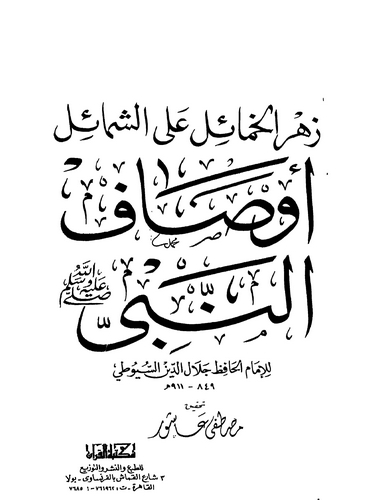 زهر الخمائل على الشمائل
أوصاف
النبي
صلى الله عليه وسلم
للإمام الحافظ جلال الدين السيوطي
٨٤٩ - ٩١١ هـ
تحقيق
مصطفى عاشور
مكتبة القرآن
للطبع والنشر والتوزيع
٣ شارع القماش بالفرنساوى - بولاق
القاهرة - ت: ٧٦١٩٦٢ - ٧٦٨٥٩١